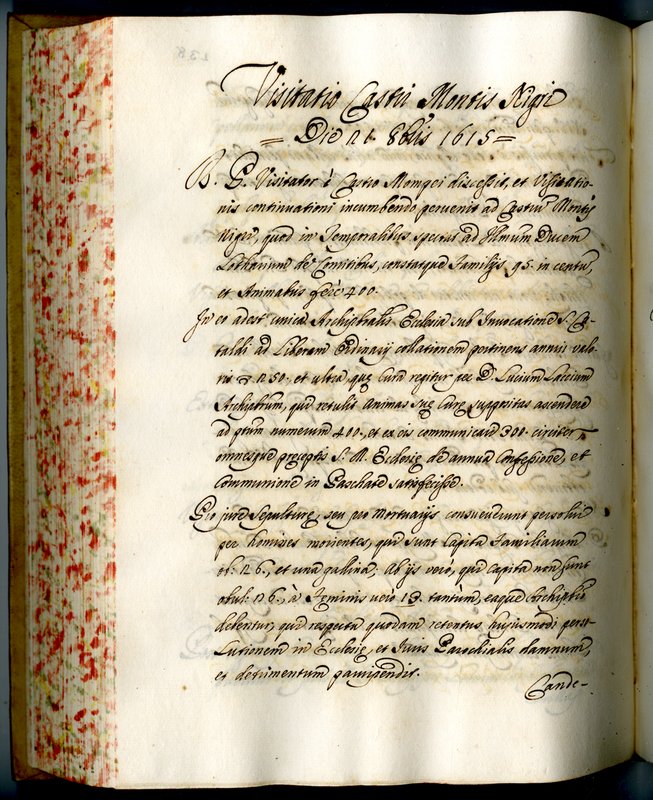 Visitatio Castri Montis Nigri
= Die 21. 8bris 1615 =
R. P. Visitator è Castro Mompei discessit, et Visitatio-
nis continuationi incumbendo pervenit ad Castrũ Montis
Nigri, quod in Temporalibus spectat ad Illmum Ducem
Lotharium de Comitibus, constatque Familijs 95. in centũ,
et Animabus ferè 400.
In eo adest unica Archipbralis Ecclesia sub Invocatione S. Ca-
taldi ad Liberam Ordinarij collationem pertinens annui valo-
ris 250. et ultra, quę Cura regitur per D. Lucium
Archipbrum, qui retulit Animas suę Curę suppositas ascendere
ad ptum numerum 400., et ex eis communicare 300. circiter
omnesque pręceptis S. M. Ecclesię de annua Confessione, et
Communione in Paschate satisfecisse.
Pro jure Sepulturę, seu pro mortuarijs consueverunt persolvi
per homines morientes, qui sunt Capita Familiarum
ob: 26., et una gallina; Ab ijs verò, qui capita non sunt
obul: 26., à Feminis verò 13. tantum, eaque Archipbro
debentur, qui respectu quodam retentus hujusmodi perso-
lutionem in Ecclesię, et Juris Parochialis damnum,
et detrimentum
Cande-